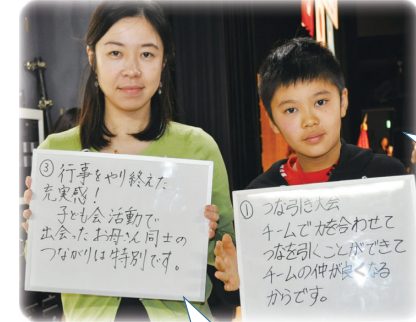 ③ 行事をやり終えた
充実感！
子ども会活動で
出会ったお母さん同士の
つながりは特別です。
① つな引き大会
チームで力を合わせて
つなを引くことができて
チームの仲が良くなる
からです。